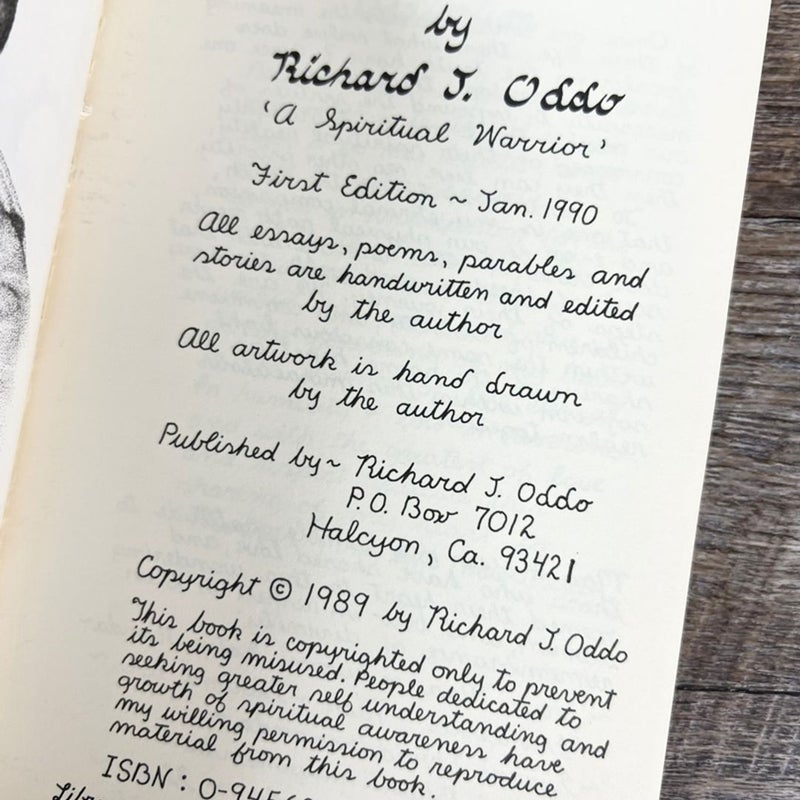 by
Richard J. Oddo
'A Spiritual Warrior'
First Edition ~ Jan. 1990
All essays, poems, parables and
stories are handwritten and edited
by the author
All artwork is hand drawn
by the author
Published by~ Richard J. Oddo
P.O. Box 7012
Halcyon, Ca. 93421
Copyright © 1989 by Richard J. Oddo
This book is copyrighted only to prevent
its being misused. People dedicated to
seeking greater self understanding and
growth of spiritual awareness have
my willing permission to reproduce
material from this book.
ISBN: 0-945